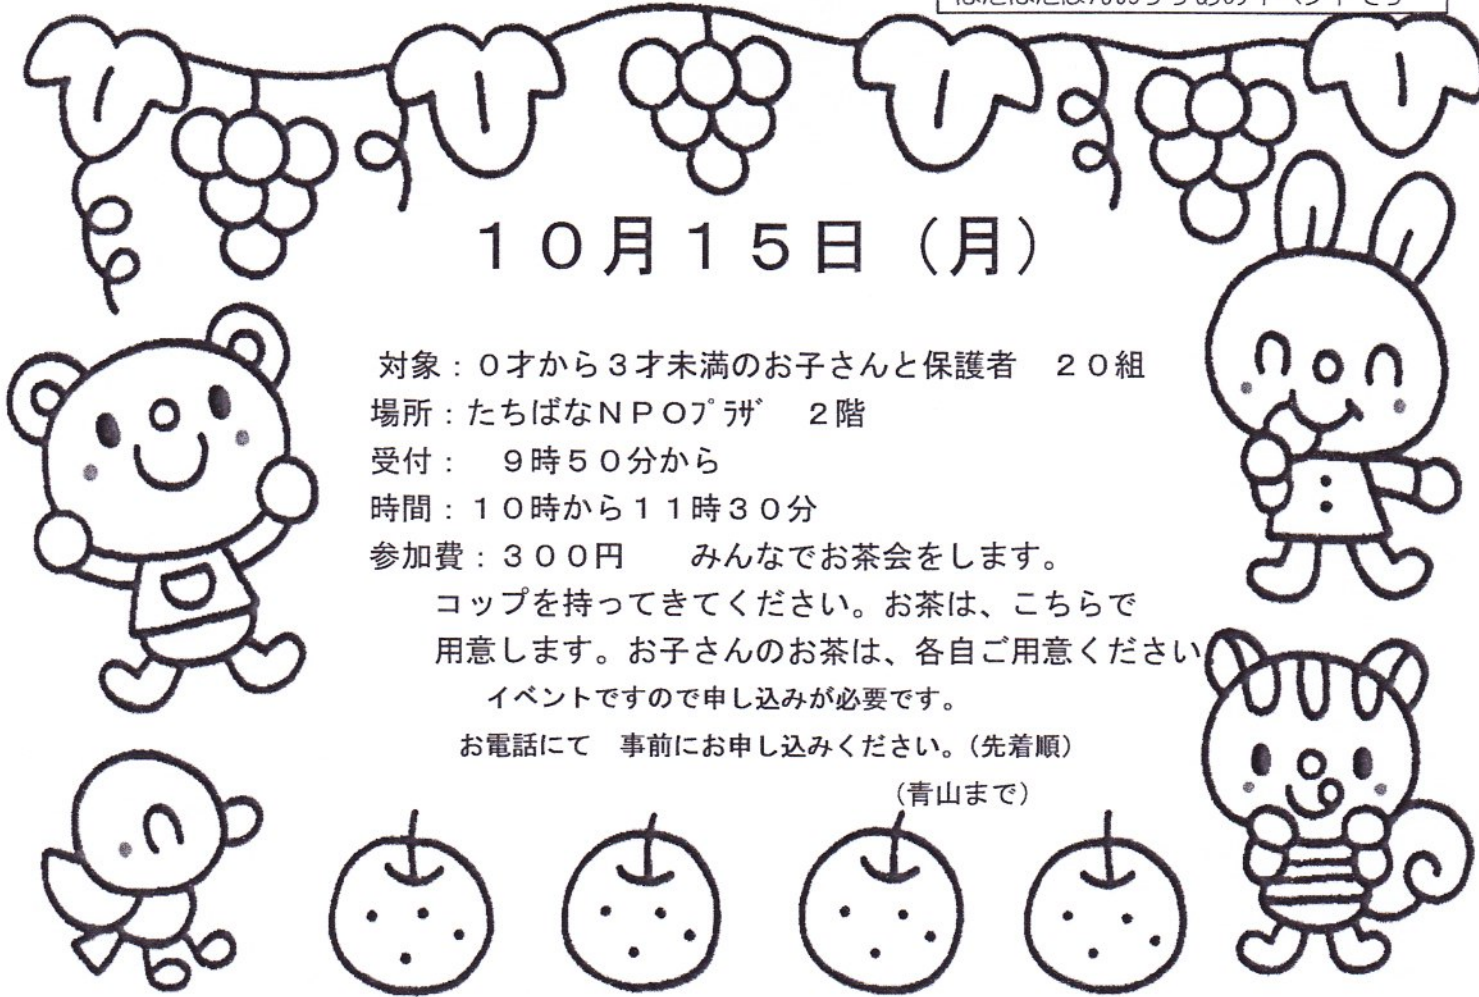 １０月１５日（月）
対象：０才から３才未満のお子さんと保護者　２０組
場所：たちばなＮＰＯﾌﾟﾗｻﾞ　２階
受付：　９時５０分から
時間：１０時から１１時３０分
参加費：３００円　　みんなでお茶会をします。
コップを持ってきてください。お茶は、こちらで
用意します。お子さんのお茶は、各自ご用意ください
イベントですので申し込みが必要です。
お電話にて　事前にお申し込みください。（先着順）
（青山まで）